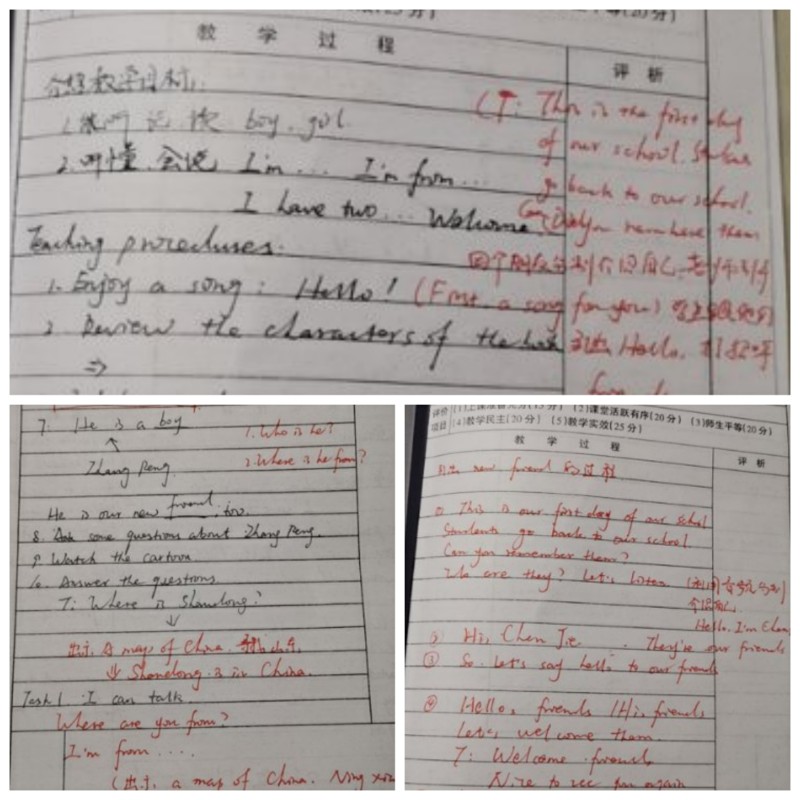 教 学 过 程
评 析
1. 能听 说 读 boy. girl
2. 听懂. 会说 I'm ... I'm from ...
I have two ... Welcome.
(T: This is the first day
of our school. Students
go back to our school.
Can you remember them
Teaching procedures:
1. Enjoy a song: Hello! (First. a song for you)
2. Review the characters of the book
⇒
7. He is a boy
↑
Zhang Peng.
1. Who is he?
2. Where is he from?
He is our new friend. too.
8. Ask some questions about Zhang Peng.
9. Watch the cartoon
10. Answer the questions
T: Where is Shandong?
↓
出示 A map of China.
↓ Shandong is in China.
Task 1. I can talk.
Where are you from?
I'm from ....
(出示 a map of China. Ning xia
评价项目 (2)课堂活跃有序(20分) (3)师生平等(20分)
(4)教学民主(20分) (5)教学实效(25分)
教 学 过 程
评 析
new friend 的过程
① This is our first day of our school
Students go back to our school.
Can you remember them?
Who are they? Let's listen
Hello. I'm Chen
② Hi, Chen Jie ... They're our friends
③ So. Let's say hello to our friends
④ Hello, friends / Hi, friends
Let's welcome them.
T: Welcome. friends
Nice to see you again